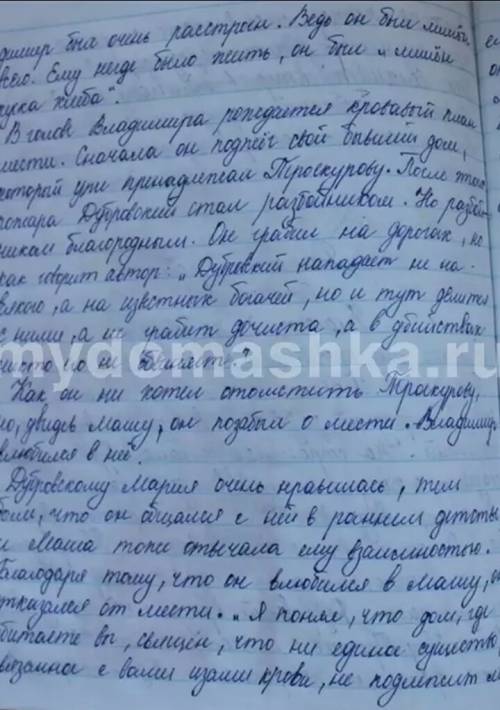 димир был очень расстроен. Ведь он был лишён
всего. Ему негде было жить, он был „ лишён
куска хлеба".
В голове Владимира рождается кровавый план
мести. Сначала он поджёг свой бывший дом,
который уже принадлежал Троскурову. После этого
пожара Дубровский стал разбойником. Но разбой-
ником благородным. Он грабил на дорогах, но
как говорит автор: „ Дубровский нападает не на
всякого, а на известных богачей, но и тут делится
с ними, а не грабит дочиста, а в убийствах
никто его не обвиняет."
mydomashka.ru
Как он ни хотел отомстить Троскурову,
но, увидев Машу, он позабыл о мести. Владимир
влюбился в неё.
Дубровскому Мария очень нравилась, тем
более, что он общался с ней в раннем детстве,
и Маша тоже отвечала ему взаимностью.
Благодаря тому, что он влюбился в Машу, он
отказался от мести. „ Я понял, что дом, где
обитаете вы, священ, что ни единое существо,
связанное с вами узами крови, не подлежит м